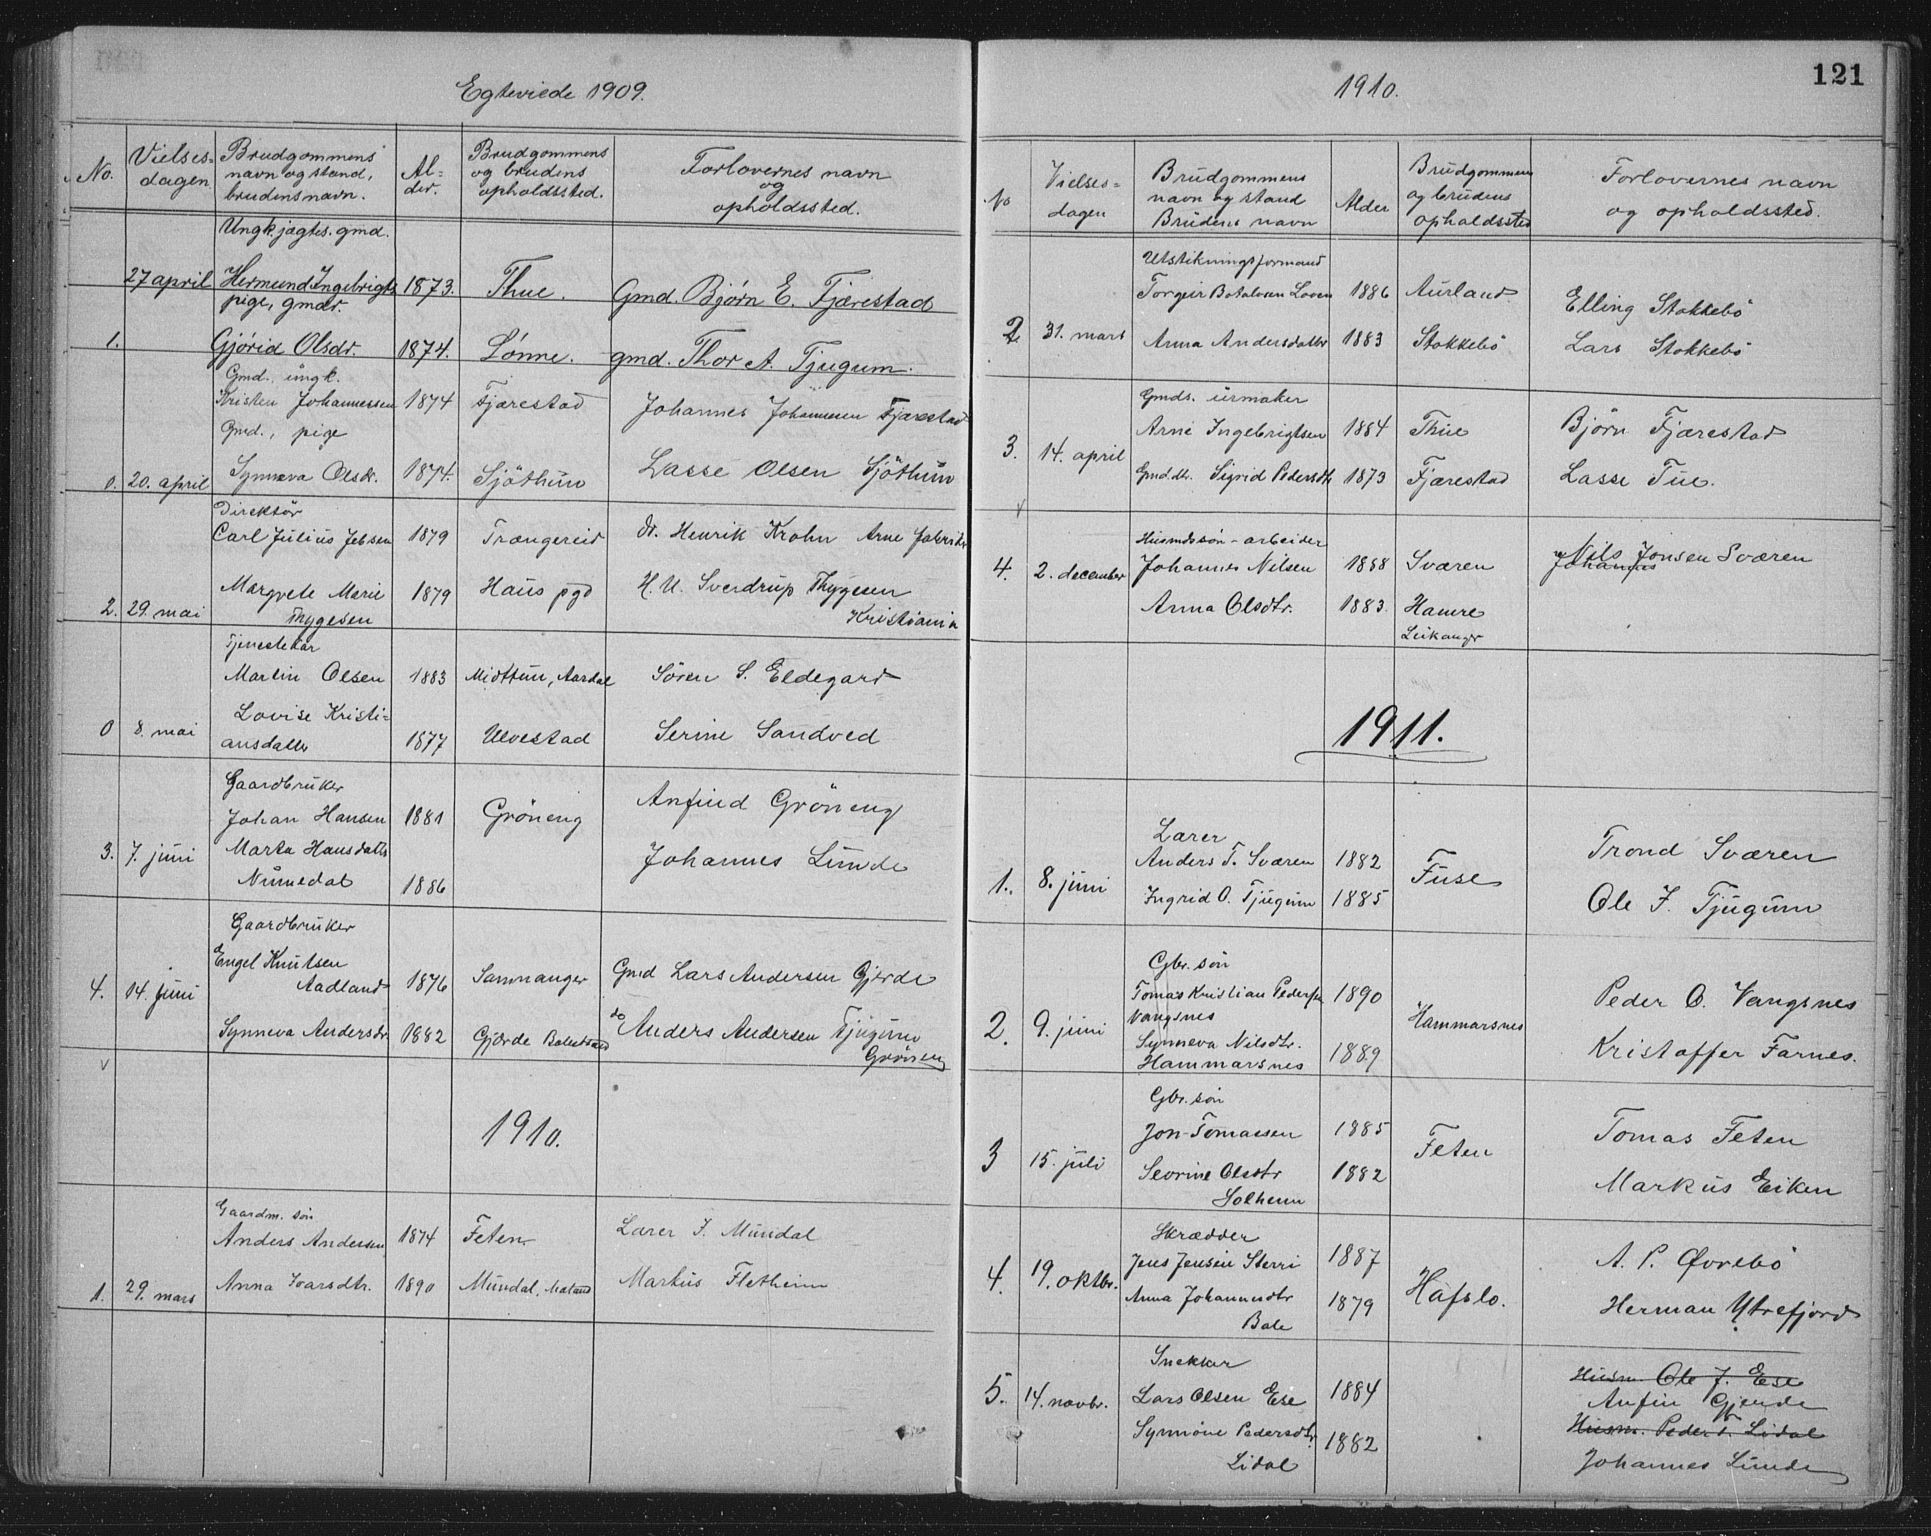 Egteviede 1909.
No.
Vielses-
dagen
Brudgommens
navn og stand,
brudens navn.
Al-
der.
Brudgommens
og brudens
opholdssted.
Forlovernes navn
og
opholdssted.
Ungk. jægtes. gmd.
27 april Hermund Ingebrigts 1873. Thue. Gmd. Bjørn E. Fjærestad
pige, gmdr.
1. Gjørid Olsdr. 1874. Lønne. gmd. Thor A. Tjugum.
Gmd., ungk.
Kristen Johannessen 1874 Fjærestad Johannes Johannesen Fjærestad
Gmd., pige
0. 20. april Synneva Olsd. 1874. Sjöthun Lasse Olsen Sjöthun
Direktör
Carl Julius Jebsen 1879 Trængereid Dr. Henrik Krohn Arne
Margrete Marie 1879 Haus pgd H. U. Sverdrup Thygesen
2. 29. mai Thygesen Kristiania
Tjenestekar
Martin Olsen 1883 Midttun, Aardal Sören S. Eldegard
Lovise Kristi-
0 8. mai ansdatter 1877 Ulvestad Serine Sandved
Gaardbruker
Johan Hansen 1881 Gröneng Anfind Gröneng
3. 7. juni Marta Hansdatter Johannes Lunde
Numedal 1886
Gaardbruker
Engel Knutsen
4. 14. juni Aadland 1876 Samnanger Gmd Lars Andersen Gjerde
Synneva Andersdr. 1882 Gjærde Balestrand do Anders Andersen Tjugum
Gröneng
1910.
Gaardm. sön
Anders Andersen 1874 Feten Lærer J. Mundal
1. 29. mars Anna Ivarsdtr. 1890 Mundal, Markus Fletheim
1910.
121
No
Vielses-
dagen
Brudgommens
navn og stand
Brudens navn
Alder
Brudgommens
og brudens
opholdssted
Forlovernes navn
og opholdssted.
Utstikningsformand
Torgeir Botolvsen Loven 1886 Aurland Elling Stokkebö
2 31. mars Anna Andersdatter 1883 Stokkebö Lars Stokkebö
Gmds. urmaker
Arne Ingebrigtsen 1884 Thue Björn Fjærestad
3. 14. april Gmd.dtr. Sigrid Pedersdtr 1873 Fjærestad Lasse Tue.
Husmdssön - arbeider
4. 2. december Johannes Nilsen 1888 Sværen Nils Jonsen Sværen
Johannes
Anna Olsdtr. 1883. Hamre
Leikanger
1911.
Lærer
Anders T. Sværen 1882 Fuse Trond Sværen
1. 8. juni Ingrid O. Tjugum 1885 Ole J. Tjugum
Gbr. sön
Tomas Kristian Pedersen 1890 Peder O. Vangsnes
Vangsnes
2. 9. juni Synneva Nilsdtr. Hammarsnes
Hammarsnes 1889 Kristoffer Farnes.
Gbr. sön
Jon Tomassen 1885 Feten Tomas Feten
3 15. juli Sevrine Olsdtr 1882
Solheim Markus Eiken
Skrædder
4. 19. oktbr. Jens Jensen Sterri 1887 Hafslo. A. P. Øvrebö
Anna Johannesdtr 1879
Bale Herman Ytrefjord
Snekker
5. 14. novbr. Lars Olsen Ese 1884 Husm. Ole J. Ese
Anfin Gjerde
Synnöve Pedersdtr. 1882 Husm. Peder T. Lidal
Lidal Johannes Lunde